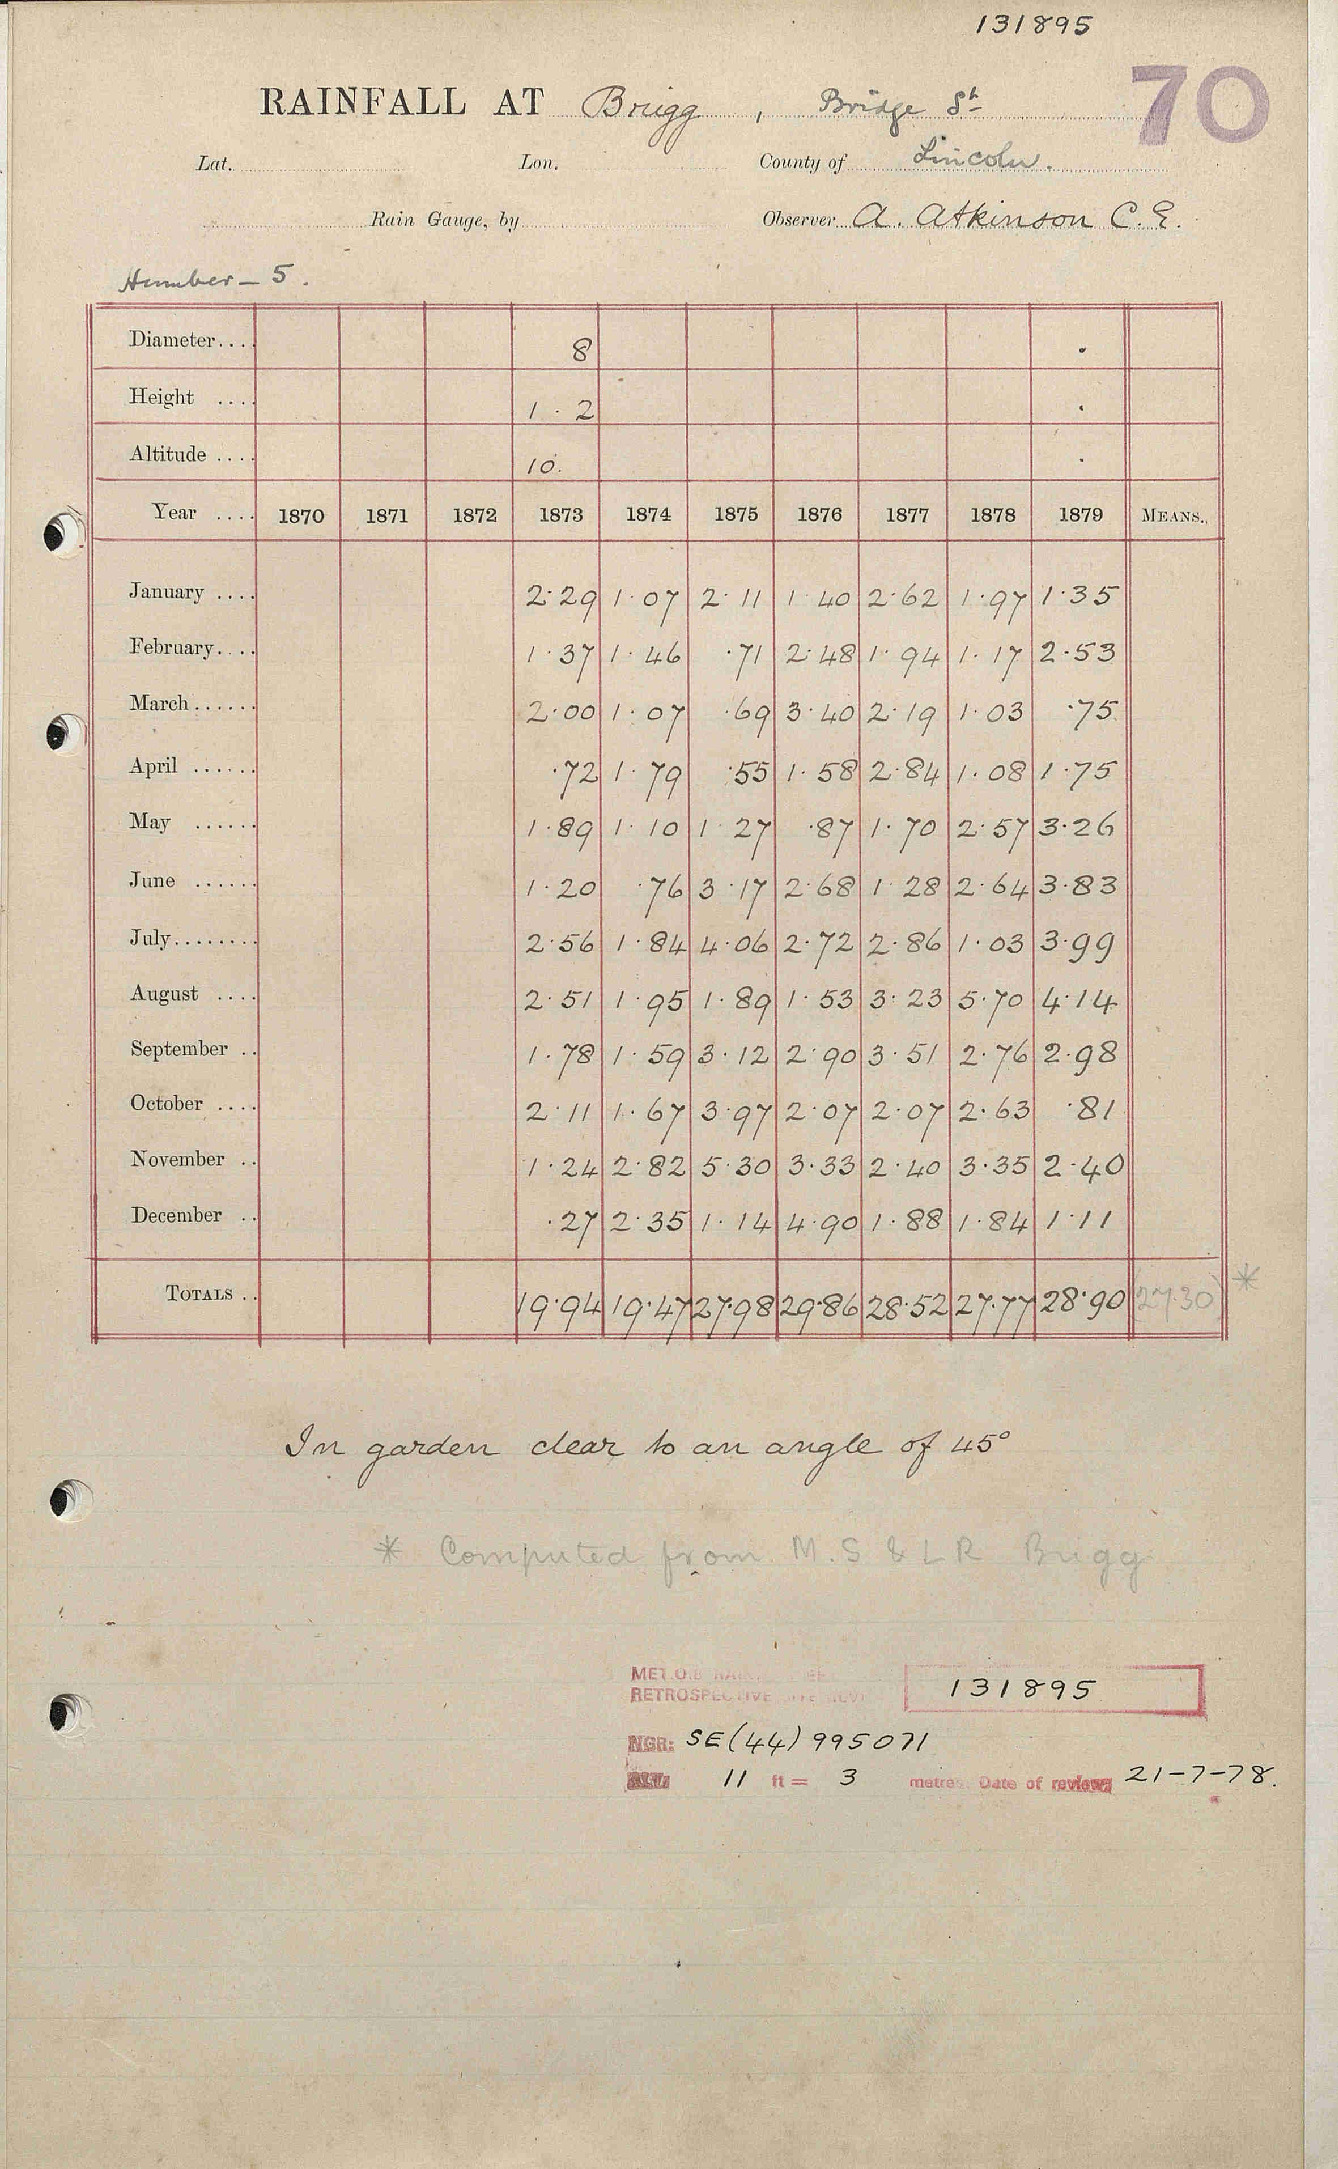 131895
70
RAINFALL AT Brigg, Bridge St
Lat. Lon. County of Lincoln.
Rain Gauge, by Observer A. Atkinson C.E.
Humber – 5.
Diameter.... 8
Height .... 1 · 2
Altitude .... 10.
Year .... 1870 1871 1872 1873 1874 1875 1876 1877 1878 1879 MEANS.
January .... 2·29 1·07 2·11 1·40 2·62 1·97 1·35
February.... 1·37 1·46 ·71 2·48 1·94 1·17 2·53
March...... 2·00 1·07 ·69 3·40 2·19 1·03 ·75
April ...... ·72 1·79 ·55 1·58 2·84 1·08 1·75
May ...... 1·89 1·10 1·27 ·87 1·70 2·57 3·26
June ...... 1·20 ·76 3·17 2·68 1·28 2·64 3·83
July........ 2·56 1·84 4·06 2·72 2·86 1·03 3·99
August .... 2·51 1·95 1·89 1·53 3·23 5·70 4·14
September .. 1·78 1·59 3·12 2·90 3·51 2·76 2·98
October .... 2·11 1·67 3·97 2·07 2·07 2·63 ·81
November .. 1·24 2·82 5·30 3·33 2·40 3·35 2·40
December .. ·27 2·35 1·14 4·90 1·88 1·84 1·11
TOTALS .. 19·94 19·47 27·98 29·86 28·52 27·77 28·90 (27·30) *
In garden clear to an angle of 45°
* Computed from M.S & L R Brigg
MET.O.8
RETROSPECTIVE 131895
NGR: SE(44) 995071
ALT: 11 ft = 3 metres. Date of review 21-7-78.